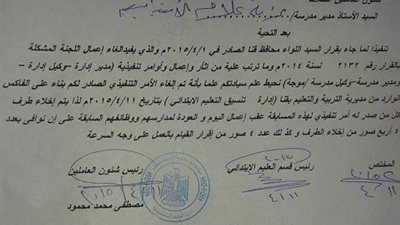 السيد الأستاذ مدير مدرسة/
بعد التحية
تنفيذا لما جاء بقرار السيد اللواء محافظ قنا الصادر في ٢٠١٥/٤/١م والذي يفيد الغاء إعمال اللجنة المشكلة
بالقرار رقم ٢١٣٢ لسنة ٢٠١٤م وما ترتب علية من اثار وإعمال وأوامر تنفيذية (مدير إدارة –وكيل إدارة –
ومدير مدرسة –وكيل مدرسة /موجة) نحيط علم سيادتكم علما بأنه تم إلغاء الأمر التنفيذي الصادر لكم بناء على الفاكس
الوارد من مديرية التربية والتعليم بقنا (إدارة تنسيق التعليم الابتدائي) بتاريخ ٢٠١٥/٤/١١م لذا يتم إخلاء طرف
كل من صدر له أمر تنفيذي لهذه المسابقة عقب إعمال اليوم و العودة لمدارسهم ووظائفهم السابقة على إن نوافى بعدد
٤ أربع صور من إخلاء الطرف و كذلك عدد ٤ صور من إقرار القيام بالعمل على وجه السرعة
المختص رئيس قسم التعليم الابتدائي رئيس شئون العاملين
مصطفى محمد محمود